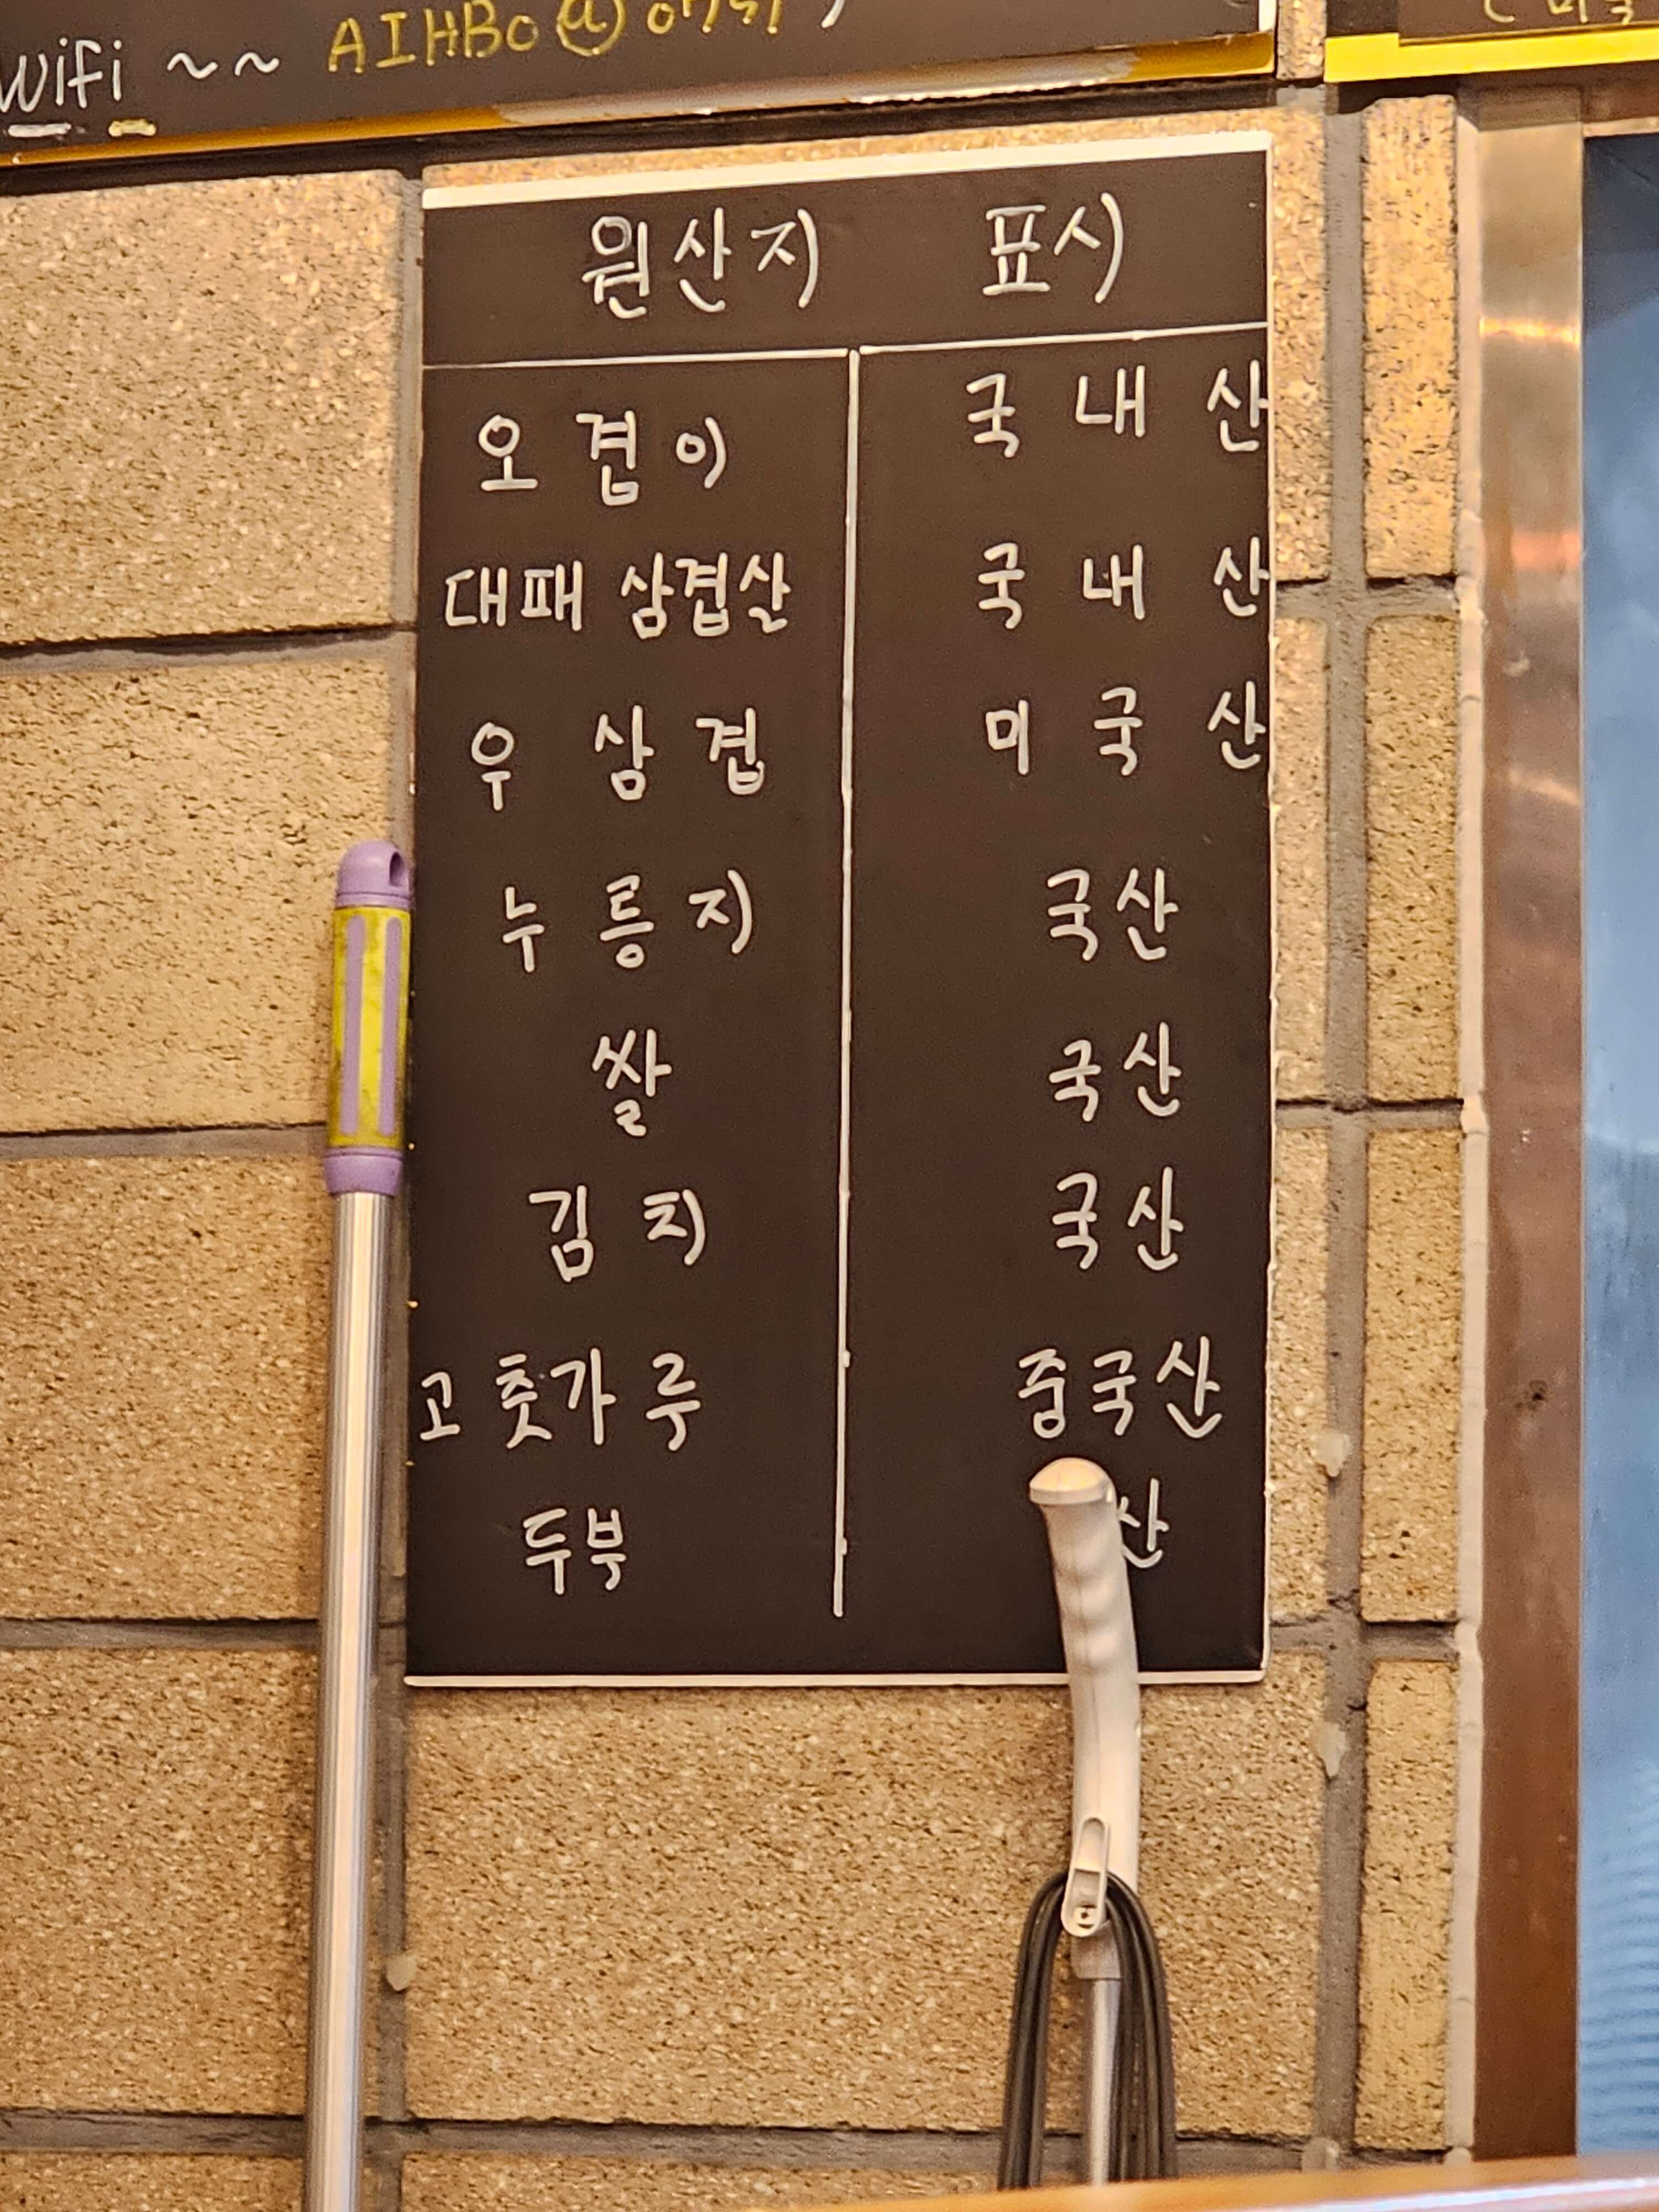 Wifi ~~ AIHBo@
원산지 표시
오겹이 국내산
대패 삼겹산 국내산
우삼겹 미국산
누릉지 국산
쌀 국산
김치 국산
고춧가루 중국산
두부 산